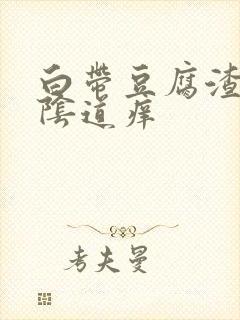 白带豆腐渣
陰道痒
考夫曼